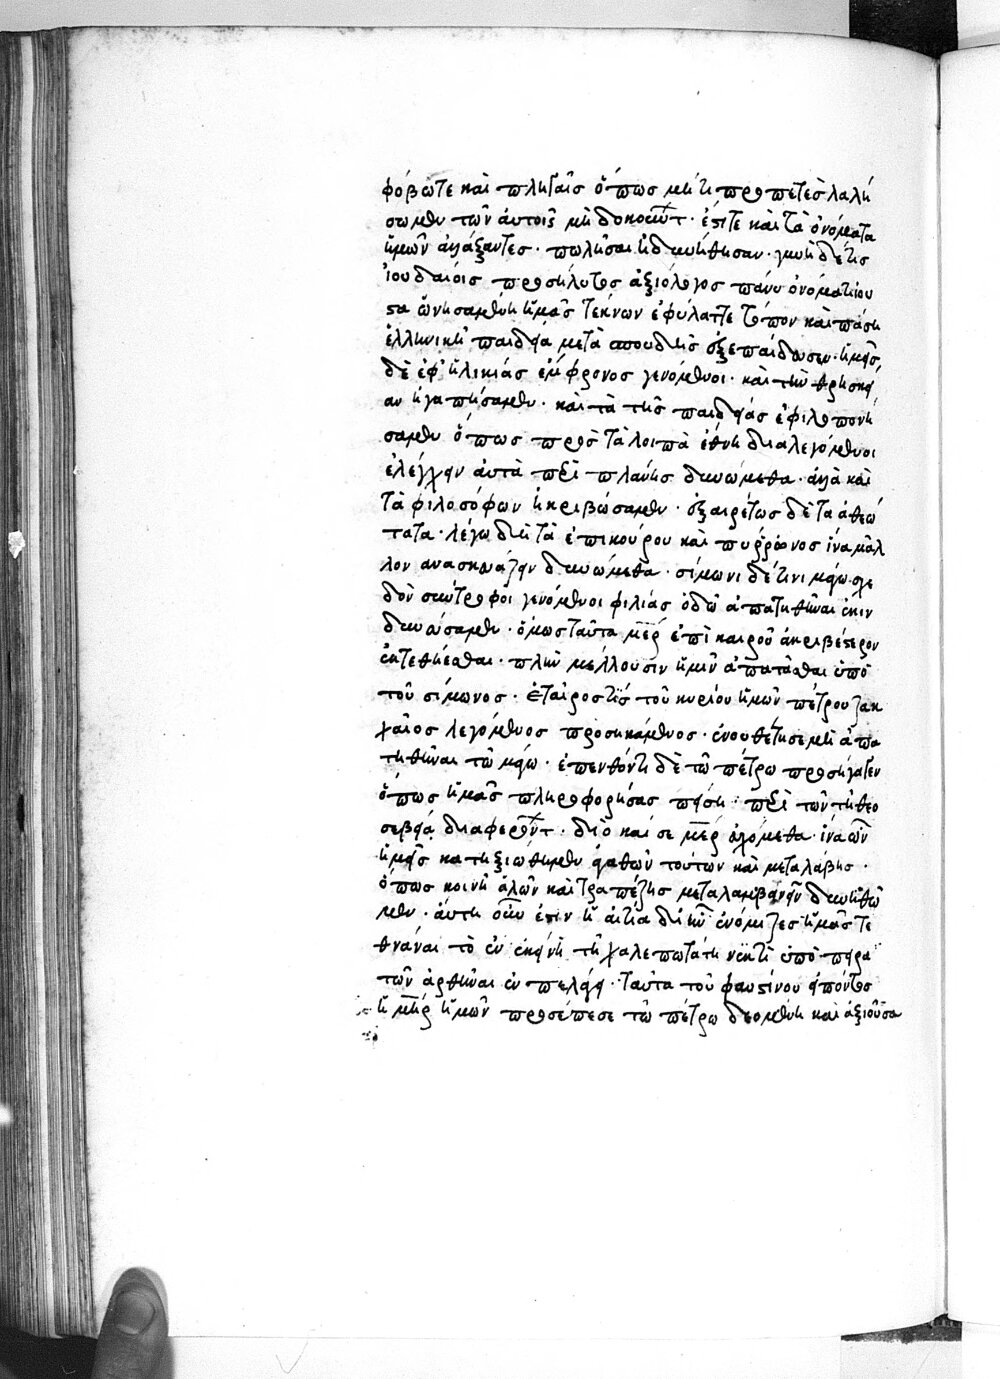 φόβω τε καὶ πληγαῖς ὅπως μή τι προπετὲς λαλή
σωμεν τῶν αὐτοῖς μὴ δοκούντ. ἔστε καὶ τὰ ὀνόματα
ἡμῶν ἀλάξαντες. πωλῆσαι ἠδυνήθησαν. γυνὴ δέ τις
ἰουδαίοις προσήλυτος ἀξιόλογος πάνυ ὀνόματι ἰου
στα ὠνησαμένη ἡμᾶς τέκνων ἐφύλαττε τόπον καὶ πάση
ἑλληνικῆ παιδεία μετὰ σπουδῆς ἐξεπαίδευσεν. ἡμεῖς
δὲ ἐφ' ἡλικίας ἔμφρονος γενόμενοι. καὶ τὴν θρησκεί
αν ἠγαπήσαμεν. καὶ τὰ τῆς παιδείας ἐφιλοπονή
σαμεν ὅπως πρὸς τὰ λοιπὰ ἔθνη διαλεγόμενοι
ἐλέγχειν αὐτὰ περὶ πλάνης δυνώμεθα. ἀλὰ καὶ
τὰ φιλοσόφων ἠκριβώσαμεν. ἐξαιρέτως δὲ τὰ ἀθεώ
τατα. λέγω δὴ τὰ ἐπικούρου καὶ πυρρωνος ἵνα μᾶλ
λον ἀνασκευάζειν δυνώμεθα. σίμωνι δέ τινι μάγω σχε
δὸν σύντροφοι γενόμενοι φιλίας ὁδῶ ἀπατηθῆναι ἐκιν
δυνεύσαμεν. ὅμως ταῦτα μερ ἐπὶ καιροῦ ἀκριβέστερον
ἐκτεθήεσθαι. πλὴν μέλλουσιν ἡμῖν ἀπατᾶσθαι ὑπὸ
τοῦ σίμωνος. ἑταῖρός τις τοῦ κυρίου ἡμῶν πέτρου ζακ
χαῖος λεγόμενος προσηκάμενος. ἐνουθέτησε μὴ ἀπα
τηθῆναι τῶ μάγω. ἐπενθόντι δὲ τῶ πέτρω προσήγαγεν
ὅπως ἡμᾶς πληροφορήσας πείση. περὶ τῶν τῆ θεο
σεβεία διαφερόντ. διὸ καί σε μερ εὐχόμεθα. ἵνα ὧν
ἡμεῖς κατηξιώθημεν ἀγαθῶν τούτων καὶ μεταλάβης.
ὅπως κοινῆ ἁλῶν καὶ τραπέζης μεταλαμβάνειν δυνηθῶ
μεν. αὕτη οὖν ἐστιν ἡ αἰτία δι' ἣν ἐνόμιζες ἡμᾶς τε
θνάναι τὸ ἐν ἐκείνη τῆ χαλεπωτάτη νυκτὶ ὑπὸ πειρα
τῶν ἀρθῆναι ἐν πελάγει. ταῦτα τοῦ φαυστίνου εἰπόντος
ἡ μηρ ἡμῶν προσέπεσε τῶ πέτρω δεομένη καὶ ἀξιοῦσα